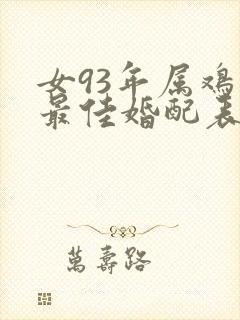 女93年属鸡
最佳婚配表
萬壽路